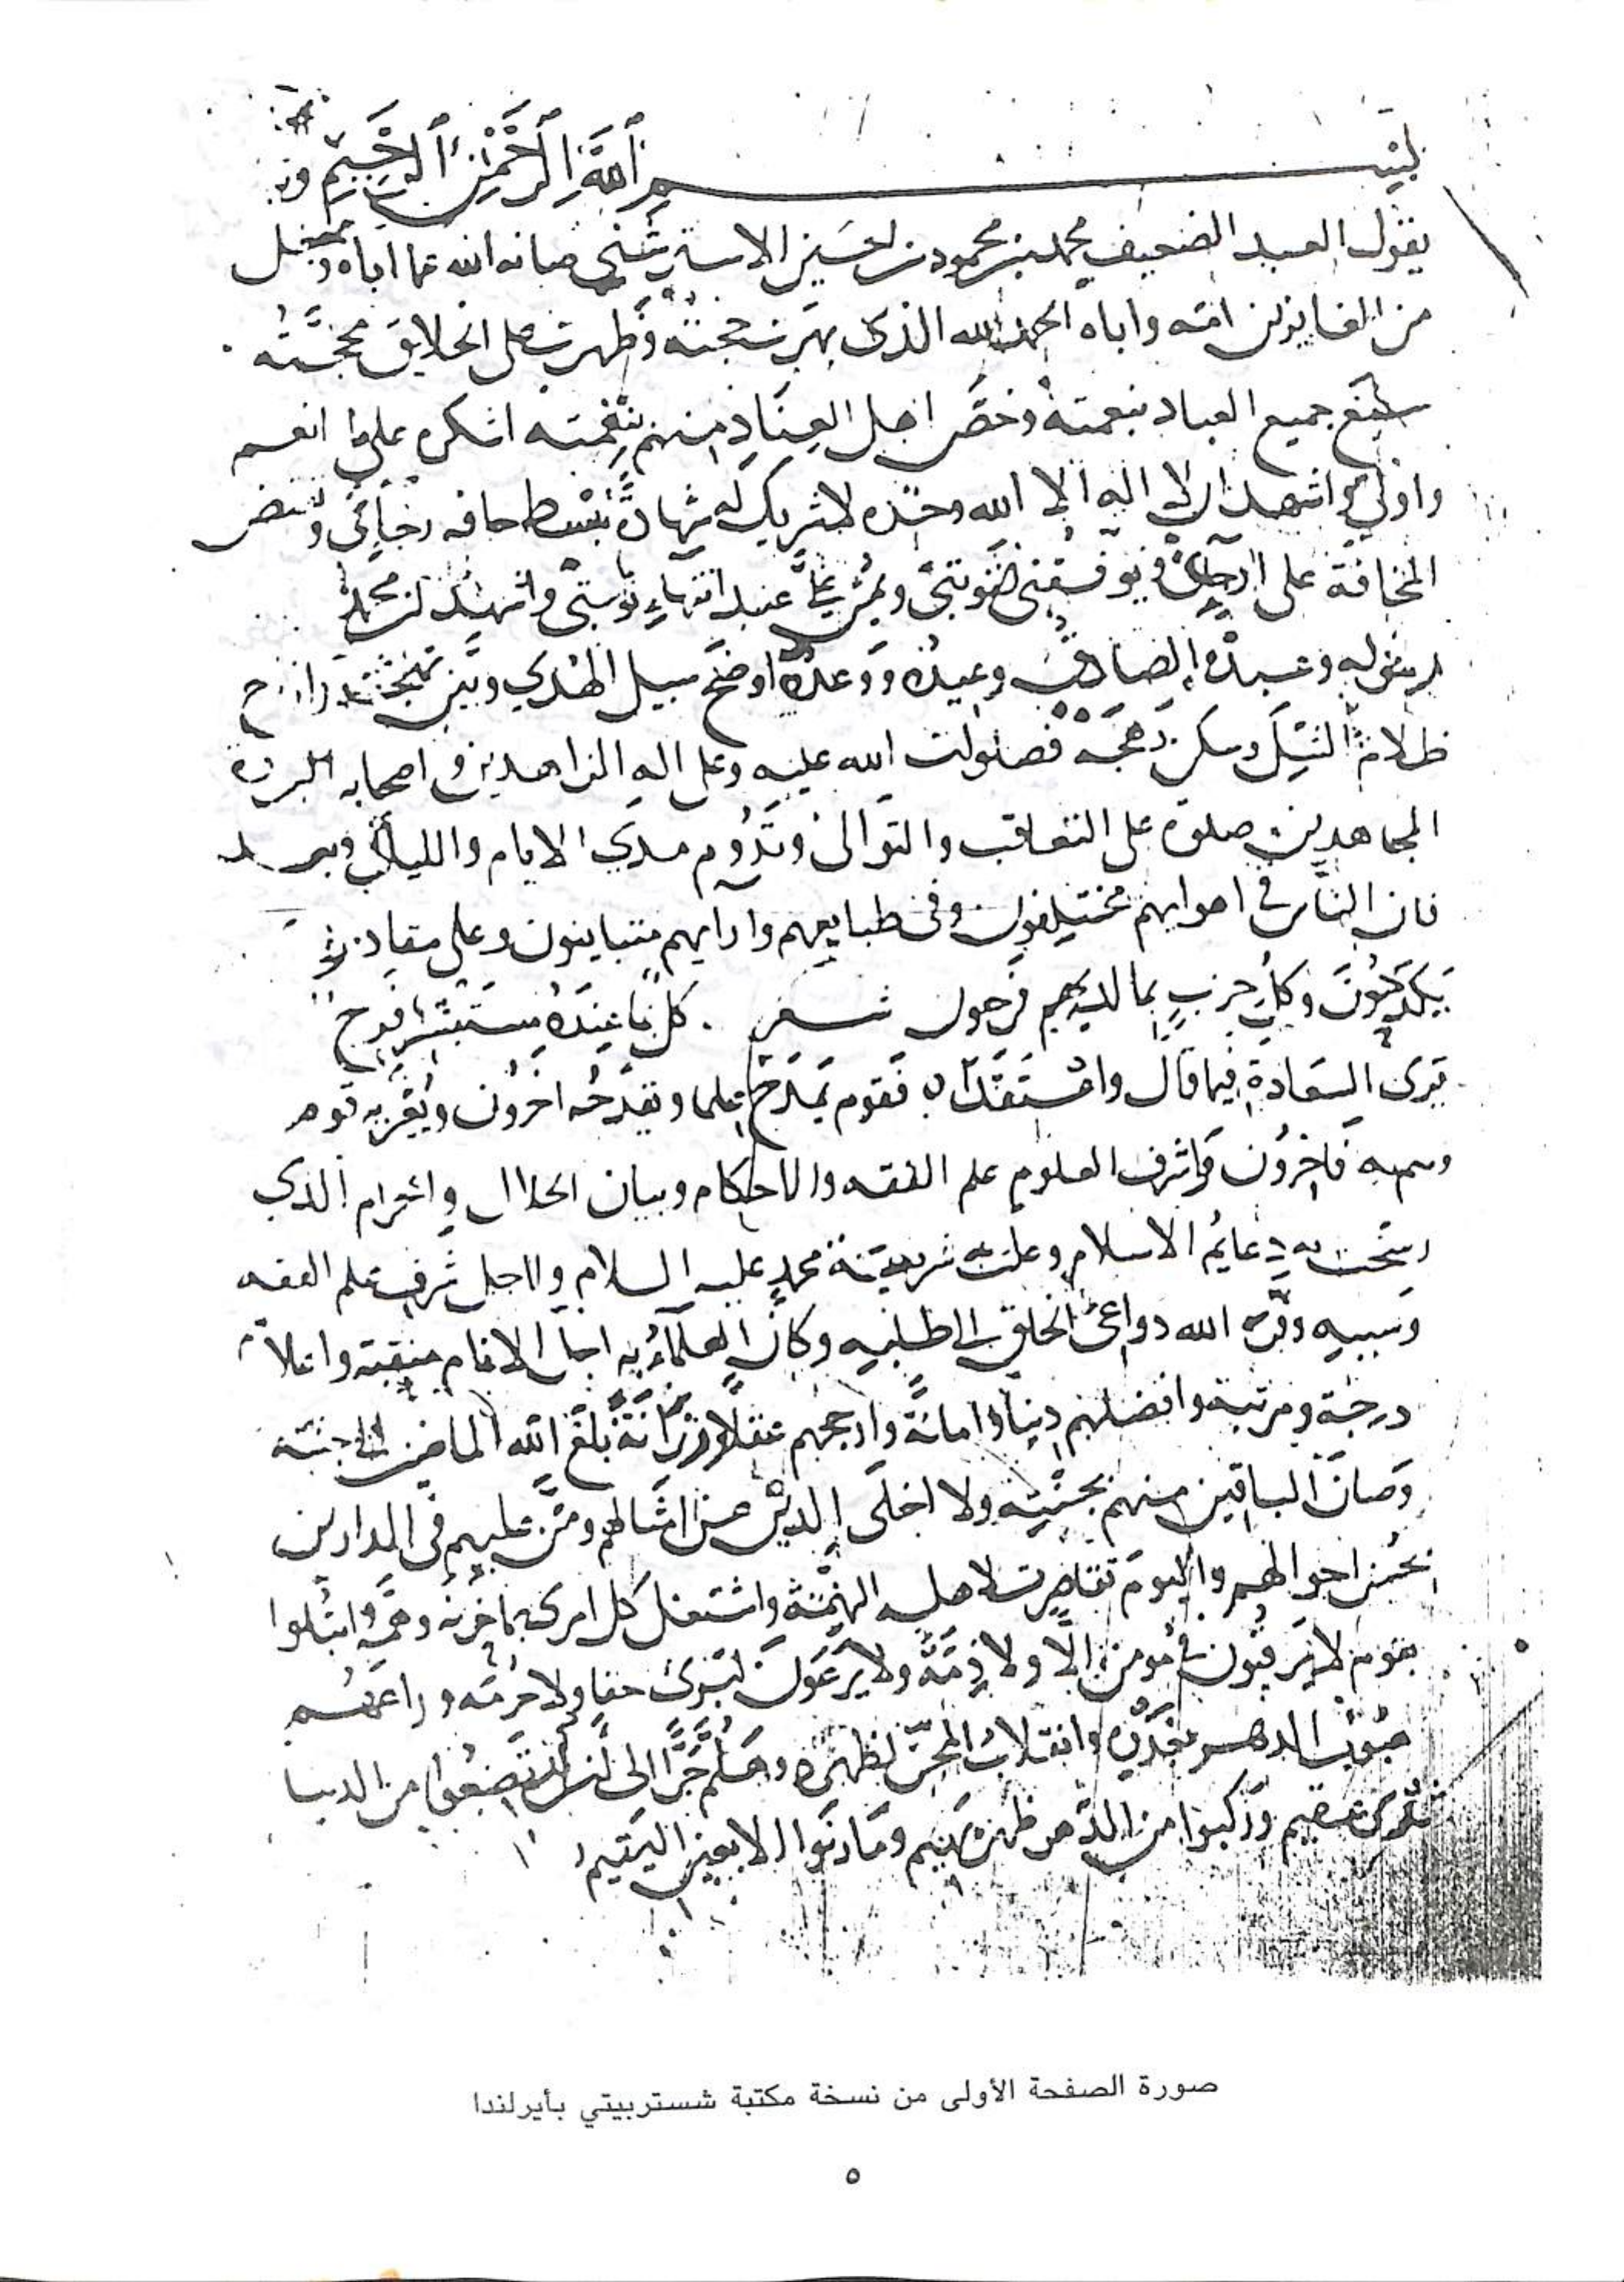 بسم الله الرحمن الرحيم
يقول العبد الضعيف محمد بن محمود بن الحسين الاستروشني صانه الله عما اباه وجعل
من الفايزين امه واباه الحمد لله الذي بهرت حجته وظهرت على الخلايق محجته
سبغ جميع العباد بنعمته وخص اهل العناد منهم بنقمته اشكره على ما انعم
واولى واشهد ان لا اله الا الله وحده لا شريك له شهادة
المخافة على عند انتهاء نوبتي واشهد ان محمدا
رسوله وعبده الصادق وعيده ووعده اوضح سبيل الهدي وبين
ظلام الشك وسكن فصلوات الله عليه وعلى اله الزاهدين و اصحابه البررة
المجاهدين صلوة على التعاقب والتوالى وتدوم مدي الايام والليالي وبعد
فان الناس في اهوايهم مختلفون وفى طبايعهم وارايهم متباينون وعلى
وكل حزب بما لديهم فرحون شعر . كل بما عنده مستبشر فرح
يرى السعادة فيما قال واعتقدا فقوم يمدح علما ويقدحه اخرون ويغر به قوم
وهم به فاخرون واشرف العلوم علم الفقه والاحكام وبيان الحلال والحرام الذي
رسخت به دعايم الاسلام وعلت به شريعة محمد عليه السلام ولاجل شرف علم الفقه
وسببه وفر الله دواعى الخلق الى طلبه وكان العلماء به اجل الانام منقبة واعلا
درجة ومرتبة وافضلهم دينا وامانة وارجحهم عقلا ورزانة بلغ الله الماضين الى جنته
وصان الباقين منهم بجنته ولا اخلى الدين عن امثالهم ومن عليهم في الدارين
بحسن احوالهم واليوم تقاصرت لاهليه الهمة واشتغل كل امرئ بما حزنه وهمه وابتلوا
بقوم لا يرقبون في مومن الا ولا ذمة ولا يرعون لبرئ حقا ولا حرمة و
الدهر وانقلاب المجن لظهره وهلم جرا الى ان من الدنيا
عقيم وركبوا من الدهر ظهر بهيم وما رنوا الا بعين اليتيم
صورة الصفحة الأولى من نسخة مكتبة شستربيتي بأيرلندا
٥